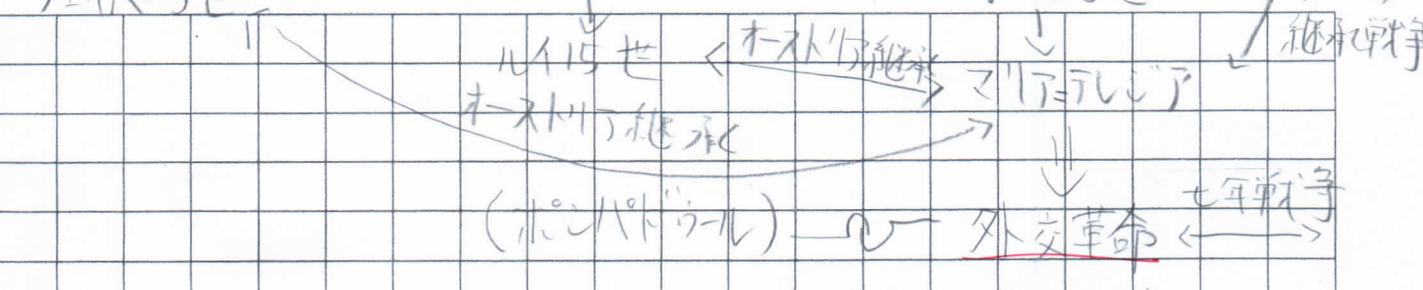 継承戦争
ルイ15世 オーストリア継承 マリア=テレジア
オーストリア継承
七年戦争
(ポンパドゥール) 外交革命